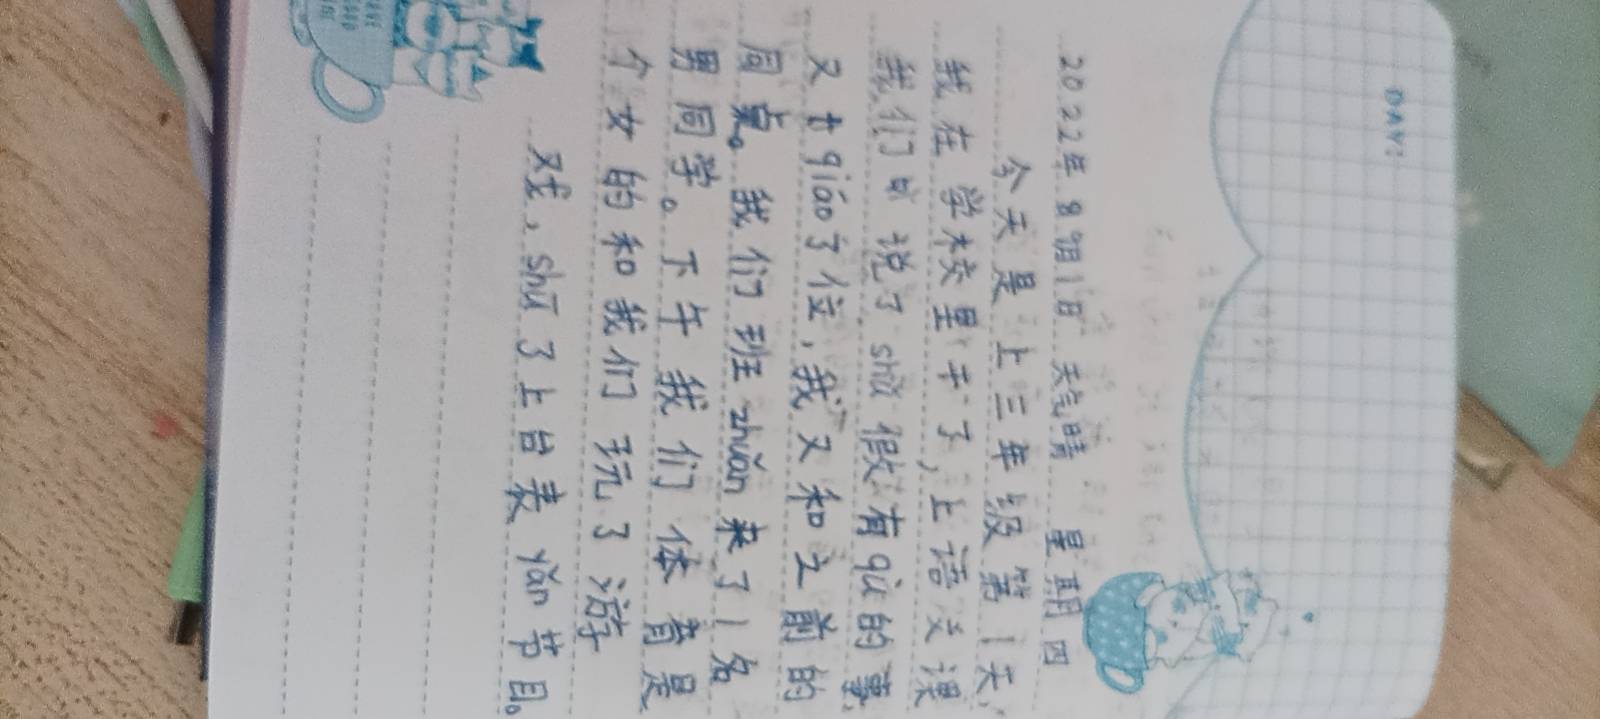 DAY:
2022年 8月1日 天气晴 星期四
今天是上三年级第1天,
我在学校里干了,上语文课
我们叫说了shǔ假有qù的事,
又tiáo了位,我又和之前的
同桌。我们班zhuǎn来了1名
男同学。下午我们体育是
个女的和我们玩了游
戏,shū了上台表yǎn节目。